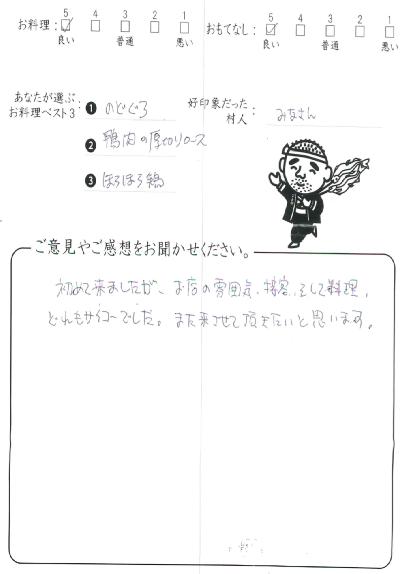 お料理: 5 4 3 2 1 おもてなし: 5 4 3 2 1
良い 普通 悪い 良い 普通 悪い
あなたが選ぶ お料理ベスト3:
❶ のどぐろ
❷ 鴨肉の厚切りロース
❸ ほろほろ鶏
好印象だった村人: みなさん
ご意見やご感想をお聞かせください。
初めて来ましたが、お店の雰囲気、接客、そして料理、
どれもサイコーでした。また来させて頂きたいと思います。